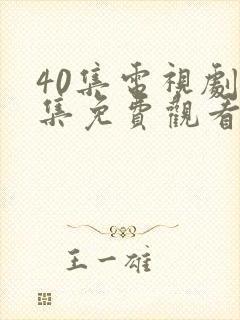 40集電視劇
集免費觀看
王一雄